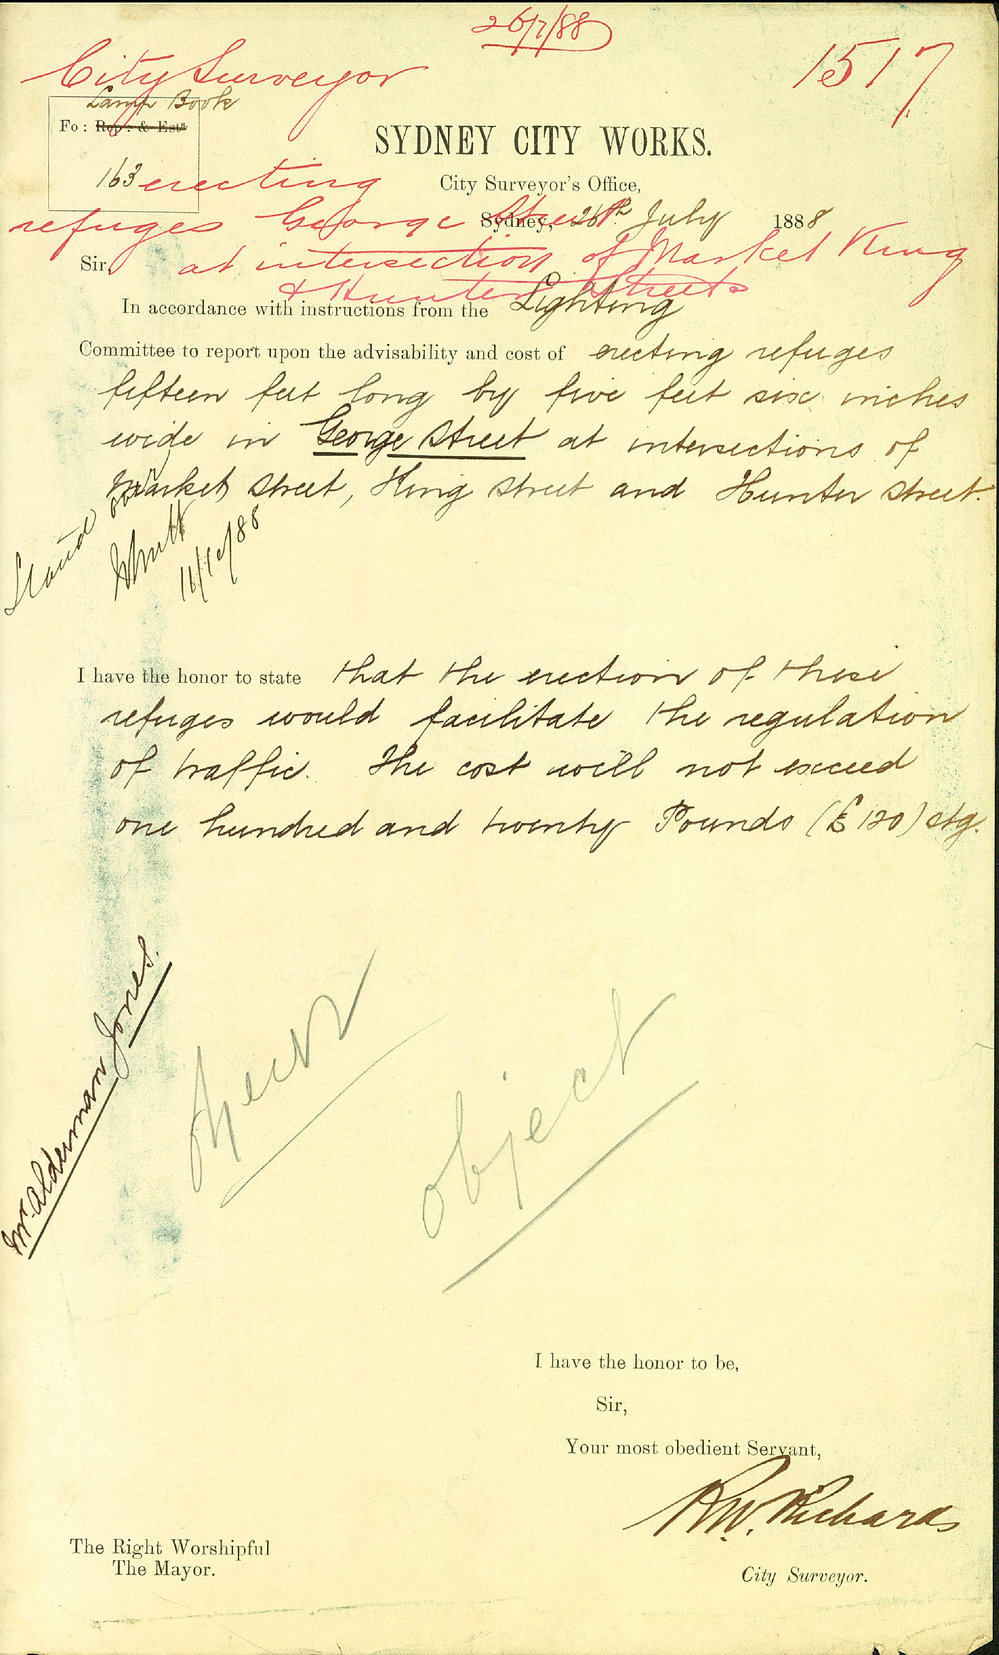 26/7/88
1517
City Surveyor
Lamp Book
Fo: Rep: & Ests
163
erecting
refuges George Street
at intersection of Market King
& Hunter Streets
SYDNEY CITY WORKS.
City Surveyor's Office,
Sydney, 26th July 1888
Sir,
In accordance with instructions from the Lighting
Committee to report upon the advisability and cost of erecting refuges
fifteen feet long by five feet six inches
wide in George Street at intersections of
Market Street, King Street and Hunter Street.
Stand over
11/10/88
I have the honor to state that the erection of these
refuges would facilitate the regulation
of traffic. The cost will not exceed
one hundred and twenty Pounds (£120) stg.
Mr. Alderman Jones.
object
I have the honor to be,
Sir,
Your most obedient Servant,
R.W. Richards
City Surveyor.
The Right Worshipful
The Mayor.